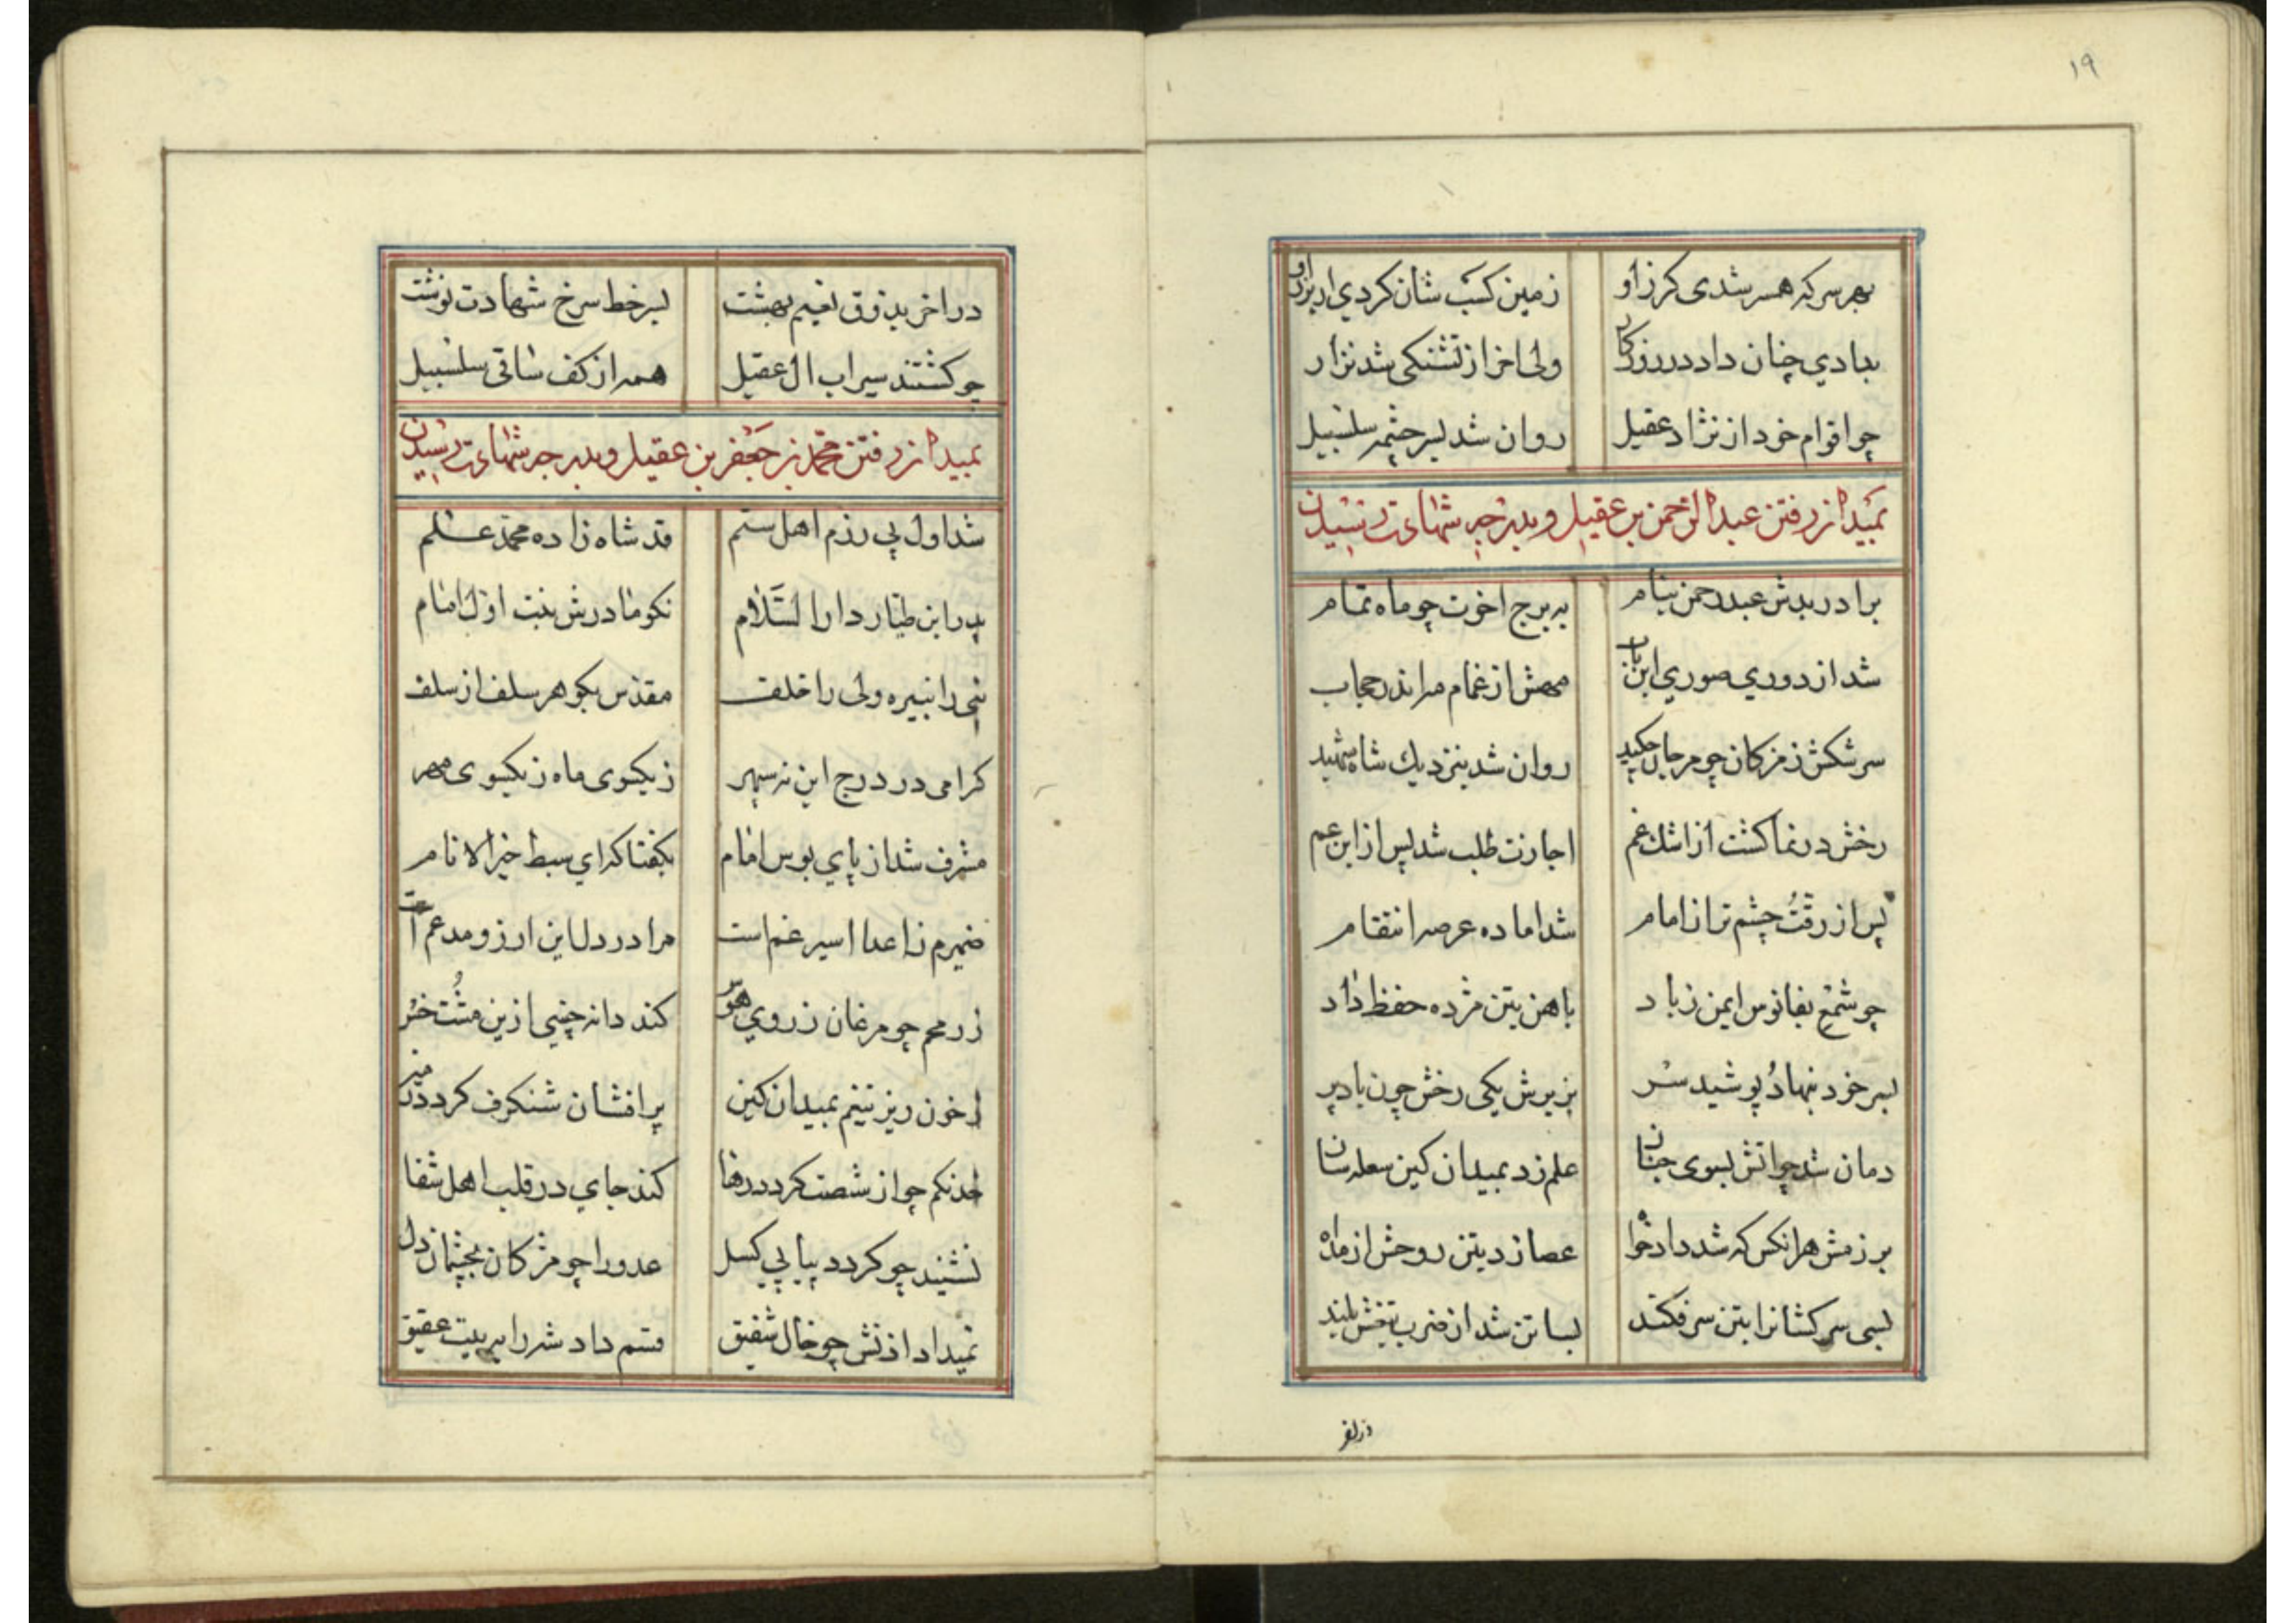 ١٩
بهر سر که همسر شدی کرز او زمین کسب شان کردی از برز او
بدادی چنان داد در روزکار ولی اخر از تشنکی شد نزار
چو اقوام خود از نژاد عقیل روان شد بسر چشمه سلسبیل
بمیدان رفتن عبدالرحمن بن عقیل و بدرجه شهادت رسیدن
برادر بدش عبدرحمن بنام به برج اخوت چو ماه تمام
شد از دوری صوری ابن باب مهش از غمام مرا ندر حجاب
سرشکش ز مژکان چو مرجان چکید روان شد بنزدیك شاه شهید
رخش در نما کشت از اشك غم اجازت طلب شد پس از ابن عم
پس از رقت چشم تر از امام شد اماده عرصه انتقام
چو شمع بفانوس ایمن ز باد باهن بتن مژده حفظ داد
بسر خود بنهاد و پوشید سر بزیرش یکی رخش چون باد پر
دمان شد چو اتش بسوی جنان علم زد بمیدان کین سعله سان
برزمش هر انکس که شد داد خواه عصا زد بتن روحش از ماه
بسی سر کشانرا بتن سر فکند بسا تن شد از ضرب تیغش بلند
در اخر بذوق نعیم بهشت بسر خط سرخ شهادت نوشت
چو کشتند سیراب ال عقیل همه از کف ساقی سلسبیل
بمیدان رفتن محمد بن جعفر بن عقیل و بدرجه شهادت رسیدن
شد اول پی رزم اهل ستم قد شاه زاده محمد علم
پدر ابن طیار دار السلام نکو مادرش بنت اول امام
نبی را نبیره ولی را خلف مقدس بکوهر سلف از سلف
کرامی در درج این نه سپهر ز یکسوی ماه ز یکسوی مهر
مشرف شد از پای بوس امام بکفتا که ای سبط خیر الانام
ضمیرم ز اعدا اسیر غم است مرا در دل این ارزو مدغم است
ز رمحم چو مرغان ز روی هوس کند دانه چینی ازین مشت خس
ز خون ریز تیغم بمیدان کین پر افشان شنکرف کردد زمین
خدنکم چو از شصت کردد رها کند جای در قلب اهل شقا
نشیند چو کردد پیاپی کسل عدو را چو مژکان بچشمان دل
نمیداد اذنش چو خال شفیق قسم داد شه را به بیت عقیق